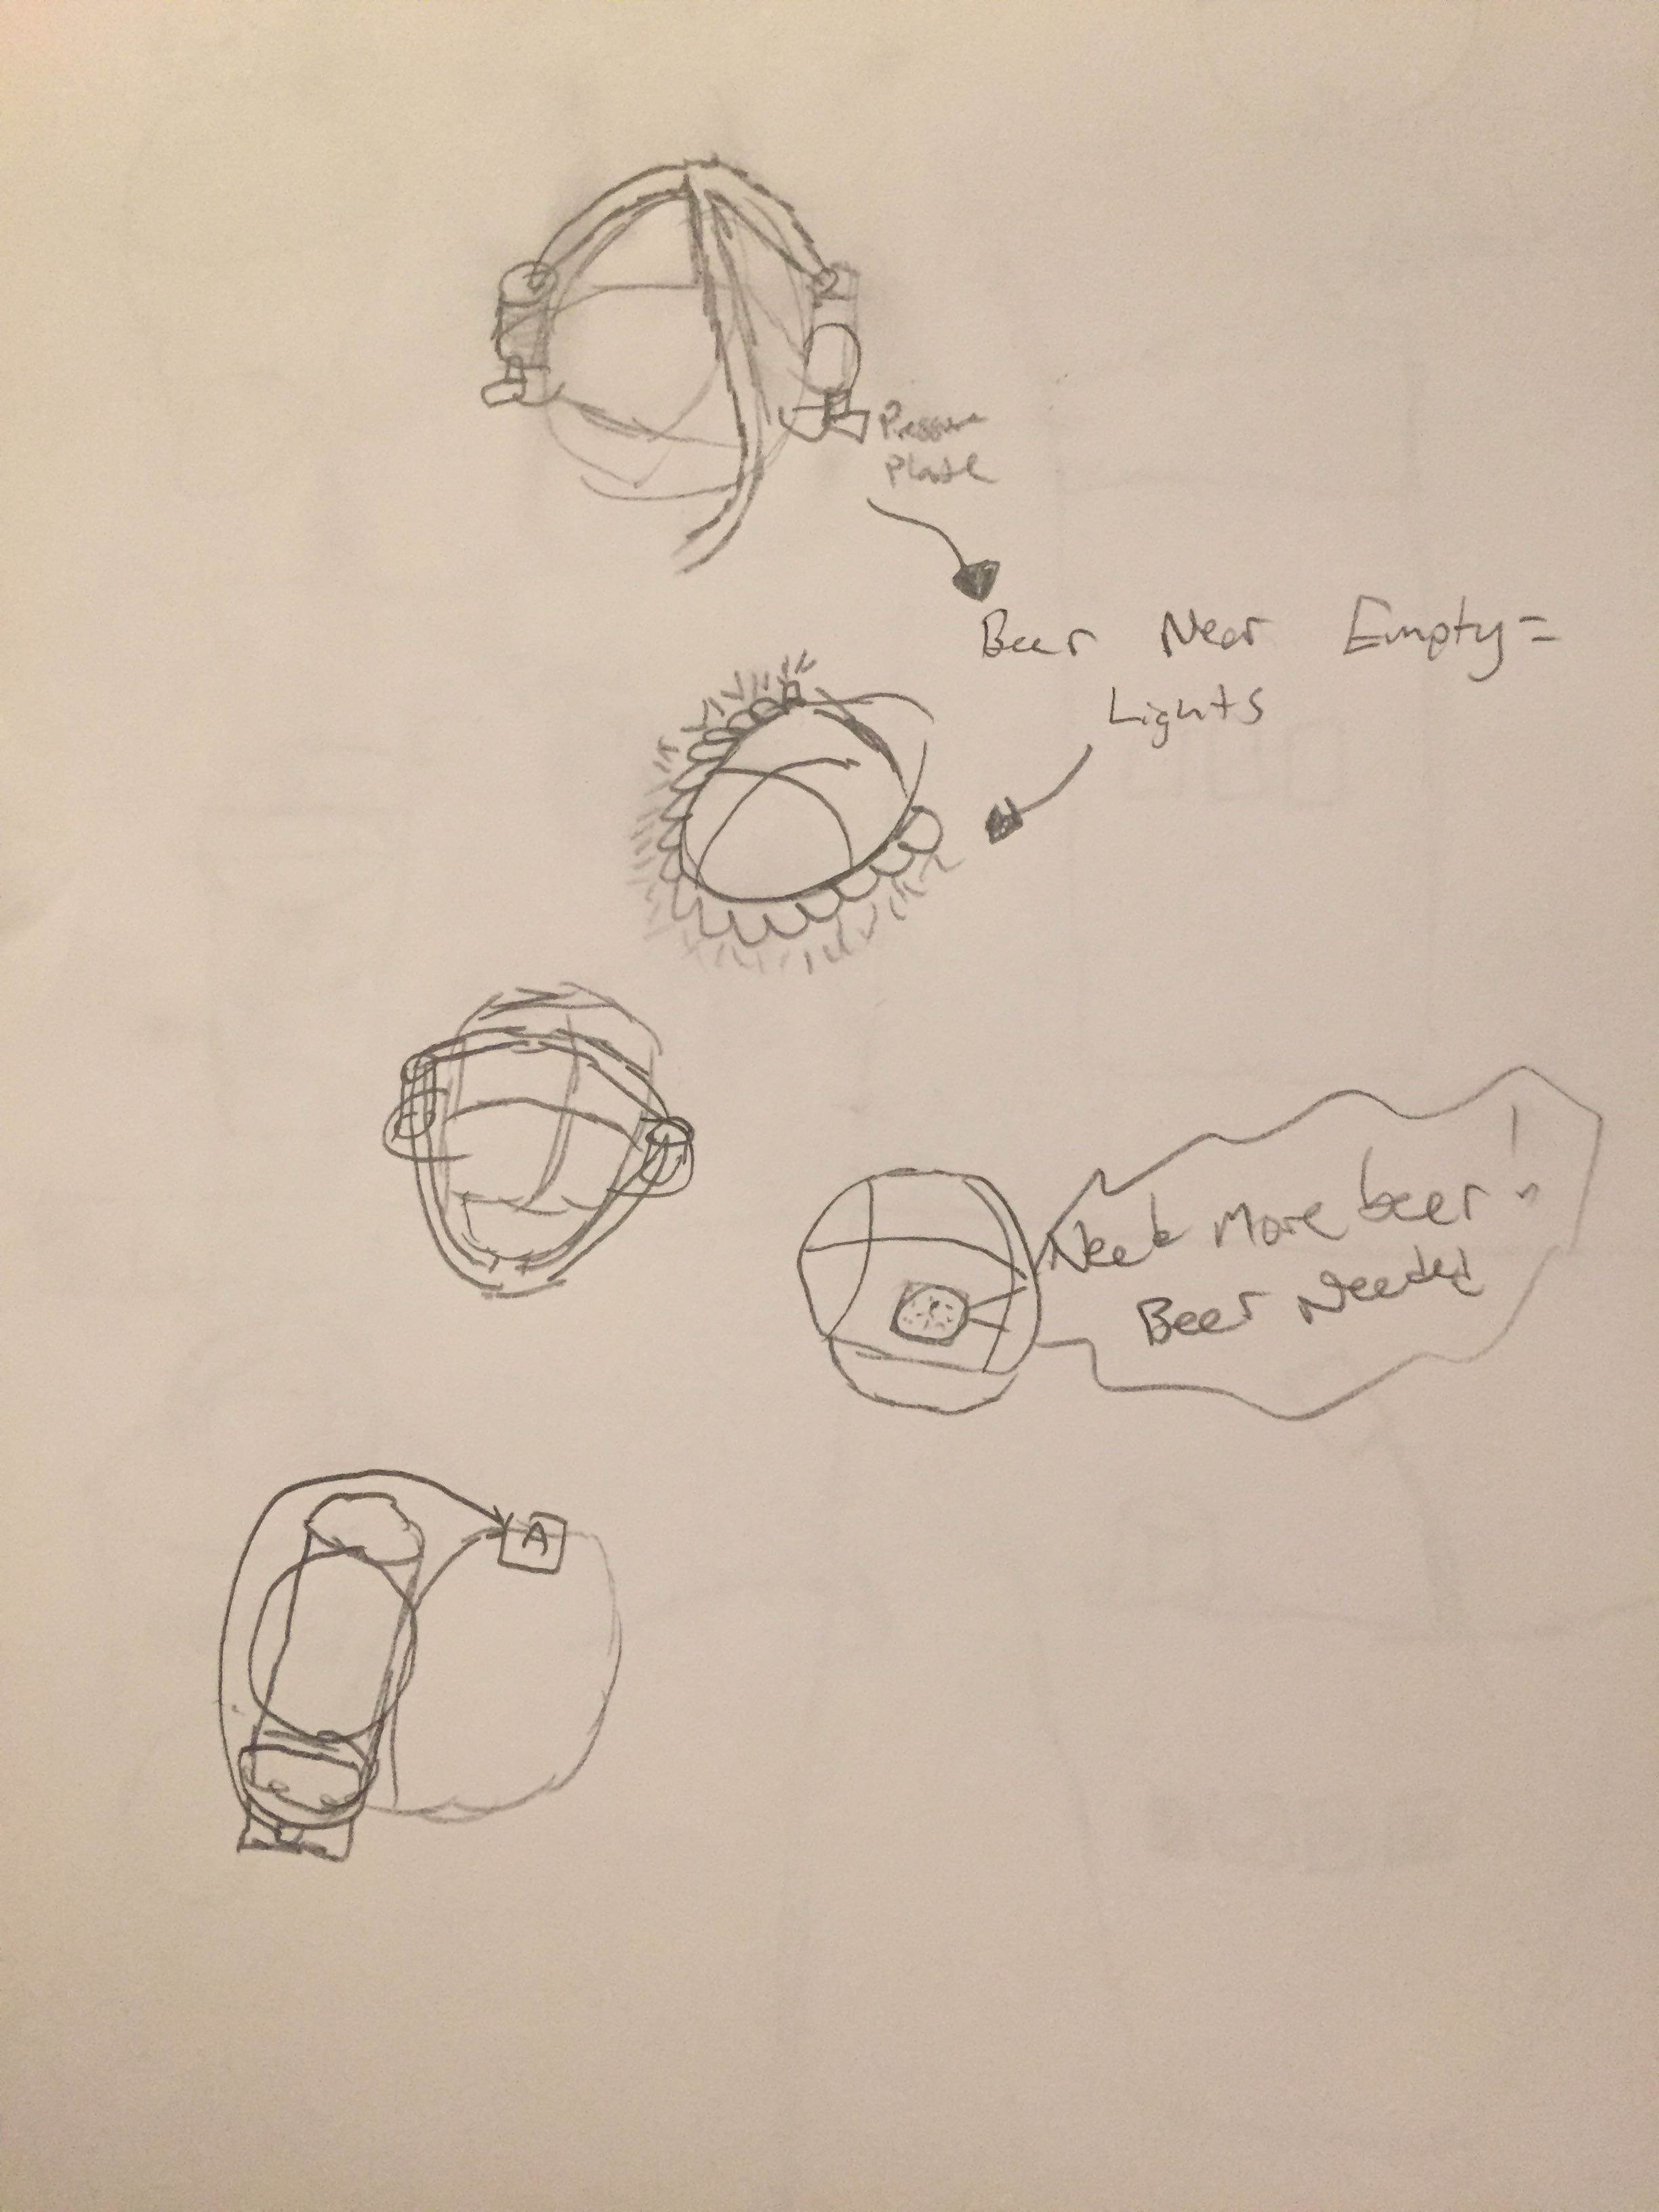 Pressure
Plate
Beer Near Empty=
Lights
Need More beer!
Beer Needed
A